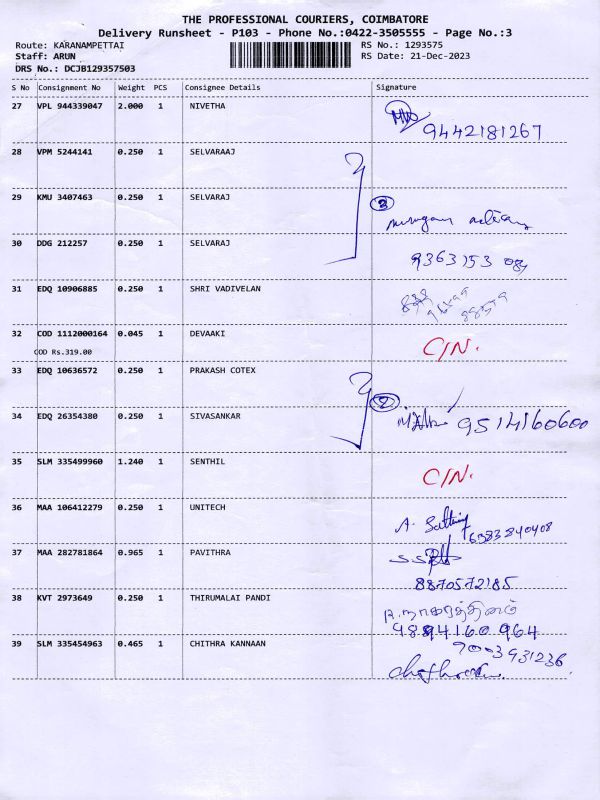 THE PROFESSIONAL COURIERS, COIMBATORE
Delivery Runsheet - P103 - Phone No.:0422-3505555 - Page No.:3
Route: KARANAMPETTAI RS No.: 1293575
Staff: ARUN RS Date: 21-Dec-2023
DRS No.: DCJB129357503
S No Consignment No Weight PCS Consignee Details Signature
27 VPL 944339047 2.000 1 NIVETHA
9442181267
28 VPM 5244141 0.250 1 SELVARAAJ
29 KMU 3407463 0.250 1 SELVARAJ
30 DDG 212257 0.250 1 SELVARAJ
31 EDQ 10906885 0.250 1 SHRI VADIVELAN
32 COD 1112000164 0.045 1 DEVAAKI C/N.
COD Rs.319.00
33 EDQ 10636572 0.250 1 PRAKASH COTEX
34 EDQ 26354380 0.250 1 SIVASANKAR 9514160600
35 SLM 335499960 1.240 1 SENTHIL C/N.
36 MAA 106412279 0.250 1 UNITECH
6383840408
37 MAA 282781864 0.965 1 PAVITHRA
8870572185
38 KVT 2973649 0.250 1 THIRUMALAI PANDI
9894160964
39 SLM 335454963 0.465 1 CHITHRA KANNAAN
7003931236